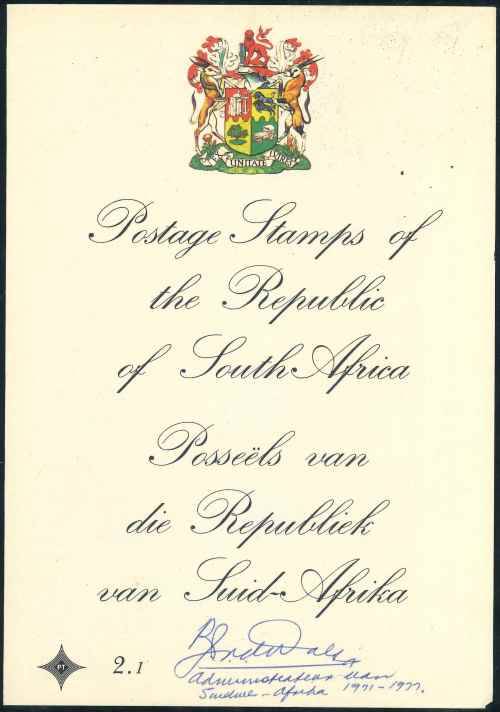 UNITATE VIRES
Postage Stamps of
the Republic
of South Africa
Posseëls van
die Republiek
van Suid-Afrika
PT
2.1
Administrateur van
Suidwes-Afrika 1971-1977.